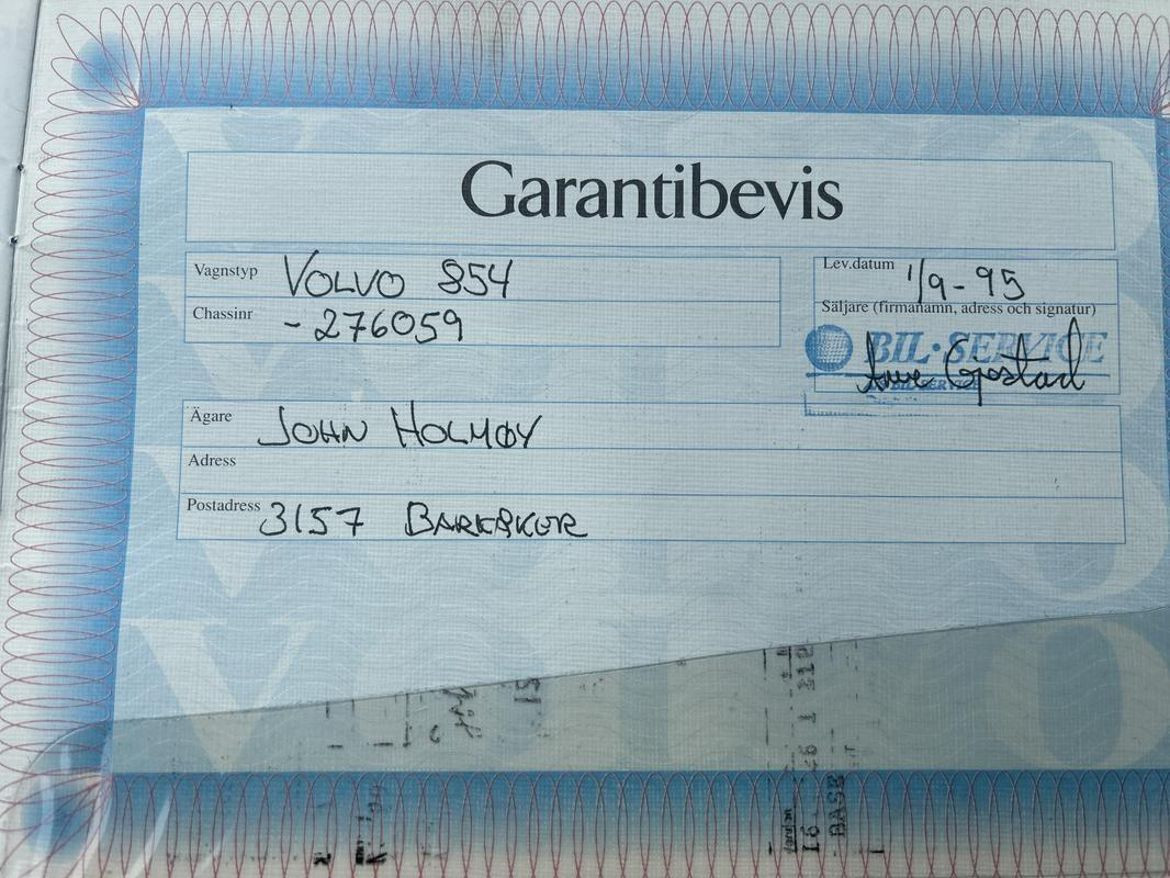 Garantibevis
Vagnstyp VOLVO 854
Chassinr - 276059
Lev.datum 1/9-95
Säljare (firmanamn, adress och signatur)
BIL·SERVICE
BIL-SERVICE
Ägare JOHN HOLMØY
Adress
Postadress 3157 BARKÅKER
VOLVO
VOLVO
BASE